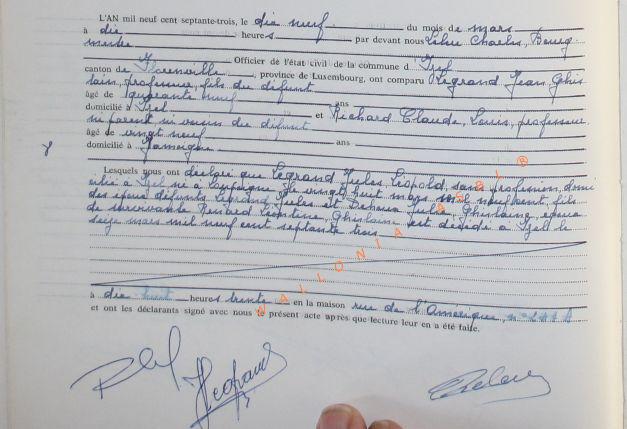 L'AN mil neuf cent septante-trois, le dix neuf du mois de mars
à dix heures par devant nous Charles, Bourg-
mestre
Izel, Officier de l'état civil de la commune d'Izel
canton de Florenville, province de Luxembourg, ont comparu Legrand Jean Ghis
lain, professeur, fils du défunt
âgé de quarante neuf ans
domicilié à Izel et Richard Claude, Louis, professeur
ni parent ni voisin du défunt
âgé de vingt neuf ans
domicilié à Jamoigne
Lesquels nous ont déclaré que Legrand Jules, Léopold, sans profession, domi
cilié à Izel né à le vingt huit mars mil neuf cent, fils
des époux défunts Legrand Jules et Julie Ghislaine, époux
de survivante Léontine, Ghislaine est décédé à Izel le
seize mars mil neuf cent septante trois
à dix huit heures trente en la maison rue de l'Amérique, n°
et ont les déclarants signé avec nous le présent acte après que lecture leur en a été faite.
Legrand
WALLONIA